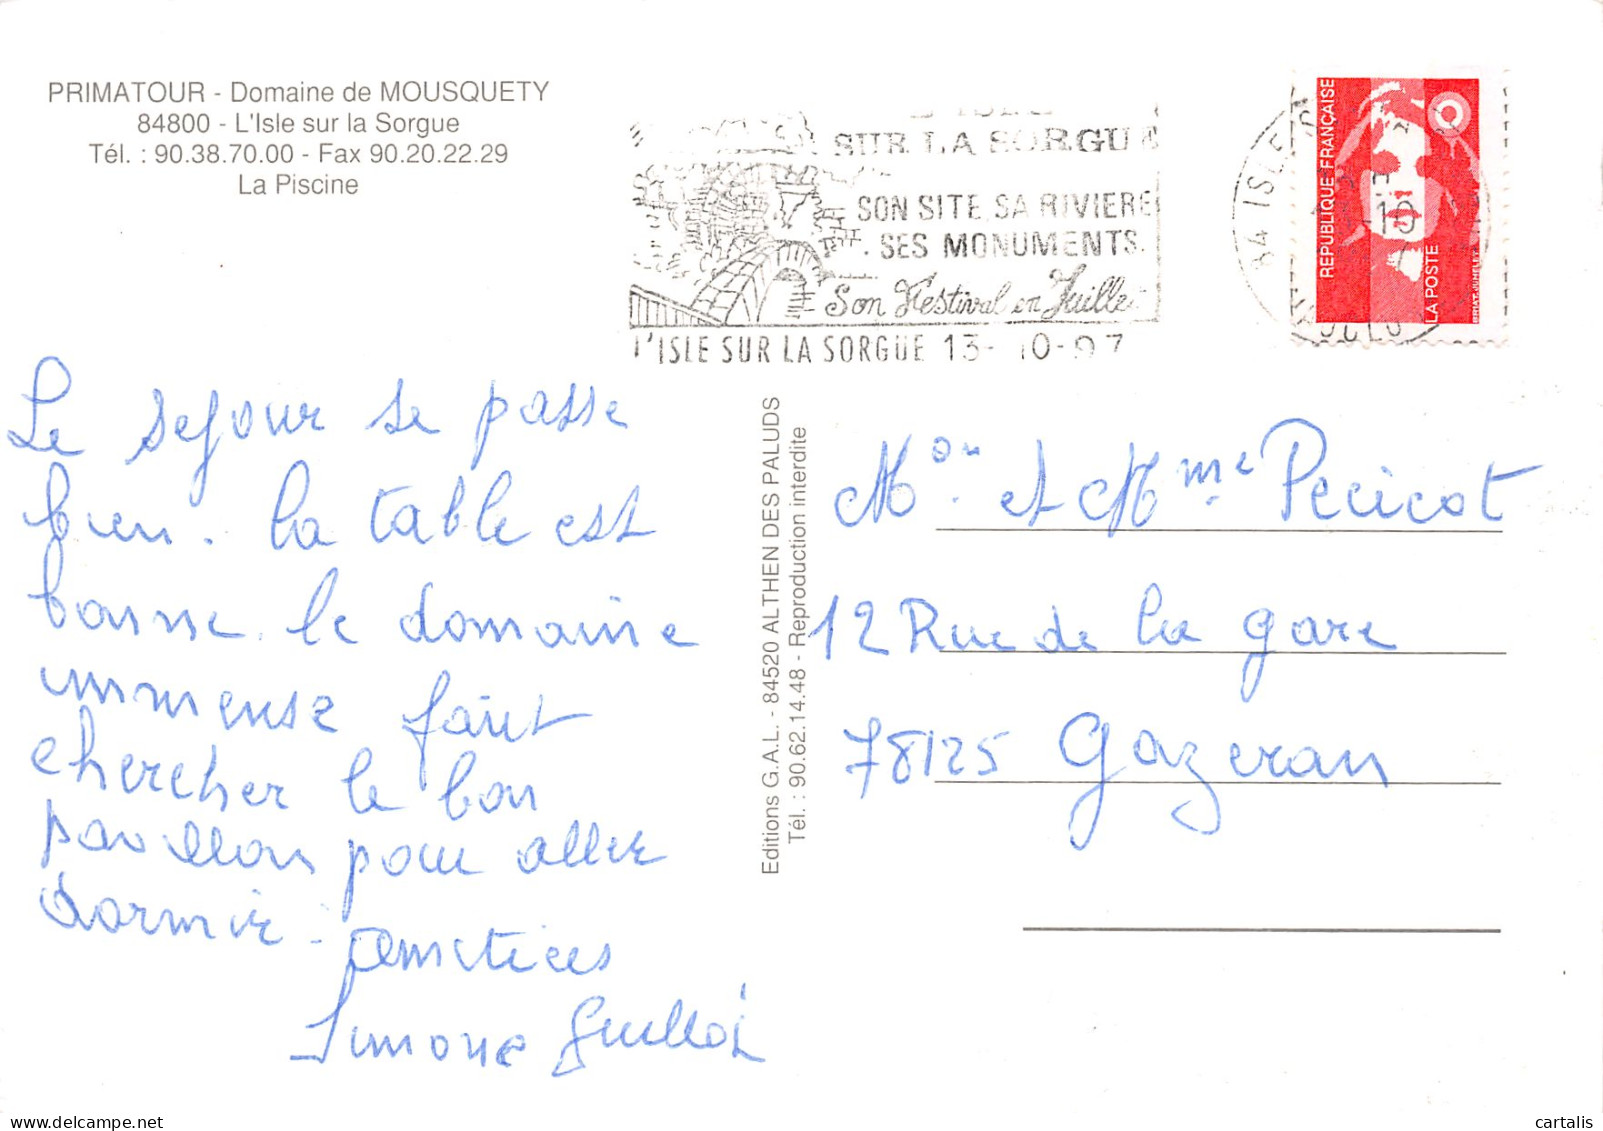 PRIMATOUR - Domaine de MOUSQUETY
84800 - L'Isle sur la Sorgue
Tél. : 90.38.70.00 - Fax 90.20.22.29
La Piscine
SUR LA SORGUE
SON SITE, SA RIVIERE
SES MONUMENTS.
Son Festival en Juillet
L'ISLE SUR LA SORGUE 13-10-97
84 ISLE
VAUCLU
REPUBLIQUE FRANÇAISE
LA POSTE
Le sejour se passe
bien. la table est
bonne. le domaine
immense faut
chercher le bon
pavillon pour aller
dormir. Amitiees
Simone Guillot
Editions G.A.L. - 84520 ALTHEN DES PALUDS
Tél. : 90.62.14.48 - Reproduction interdite
Mon. et Mme Pecicot
12 Rue de la gare
78125 Gazeran
cartalis
www.delcampe.net